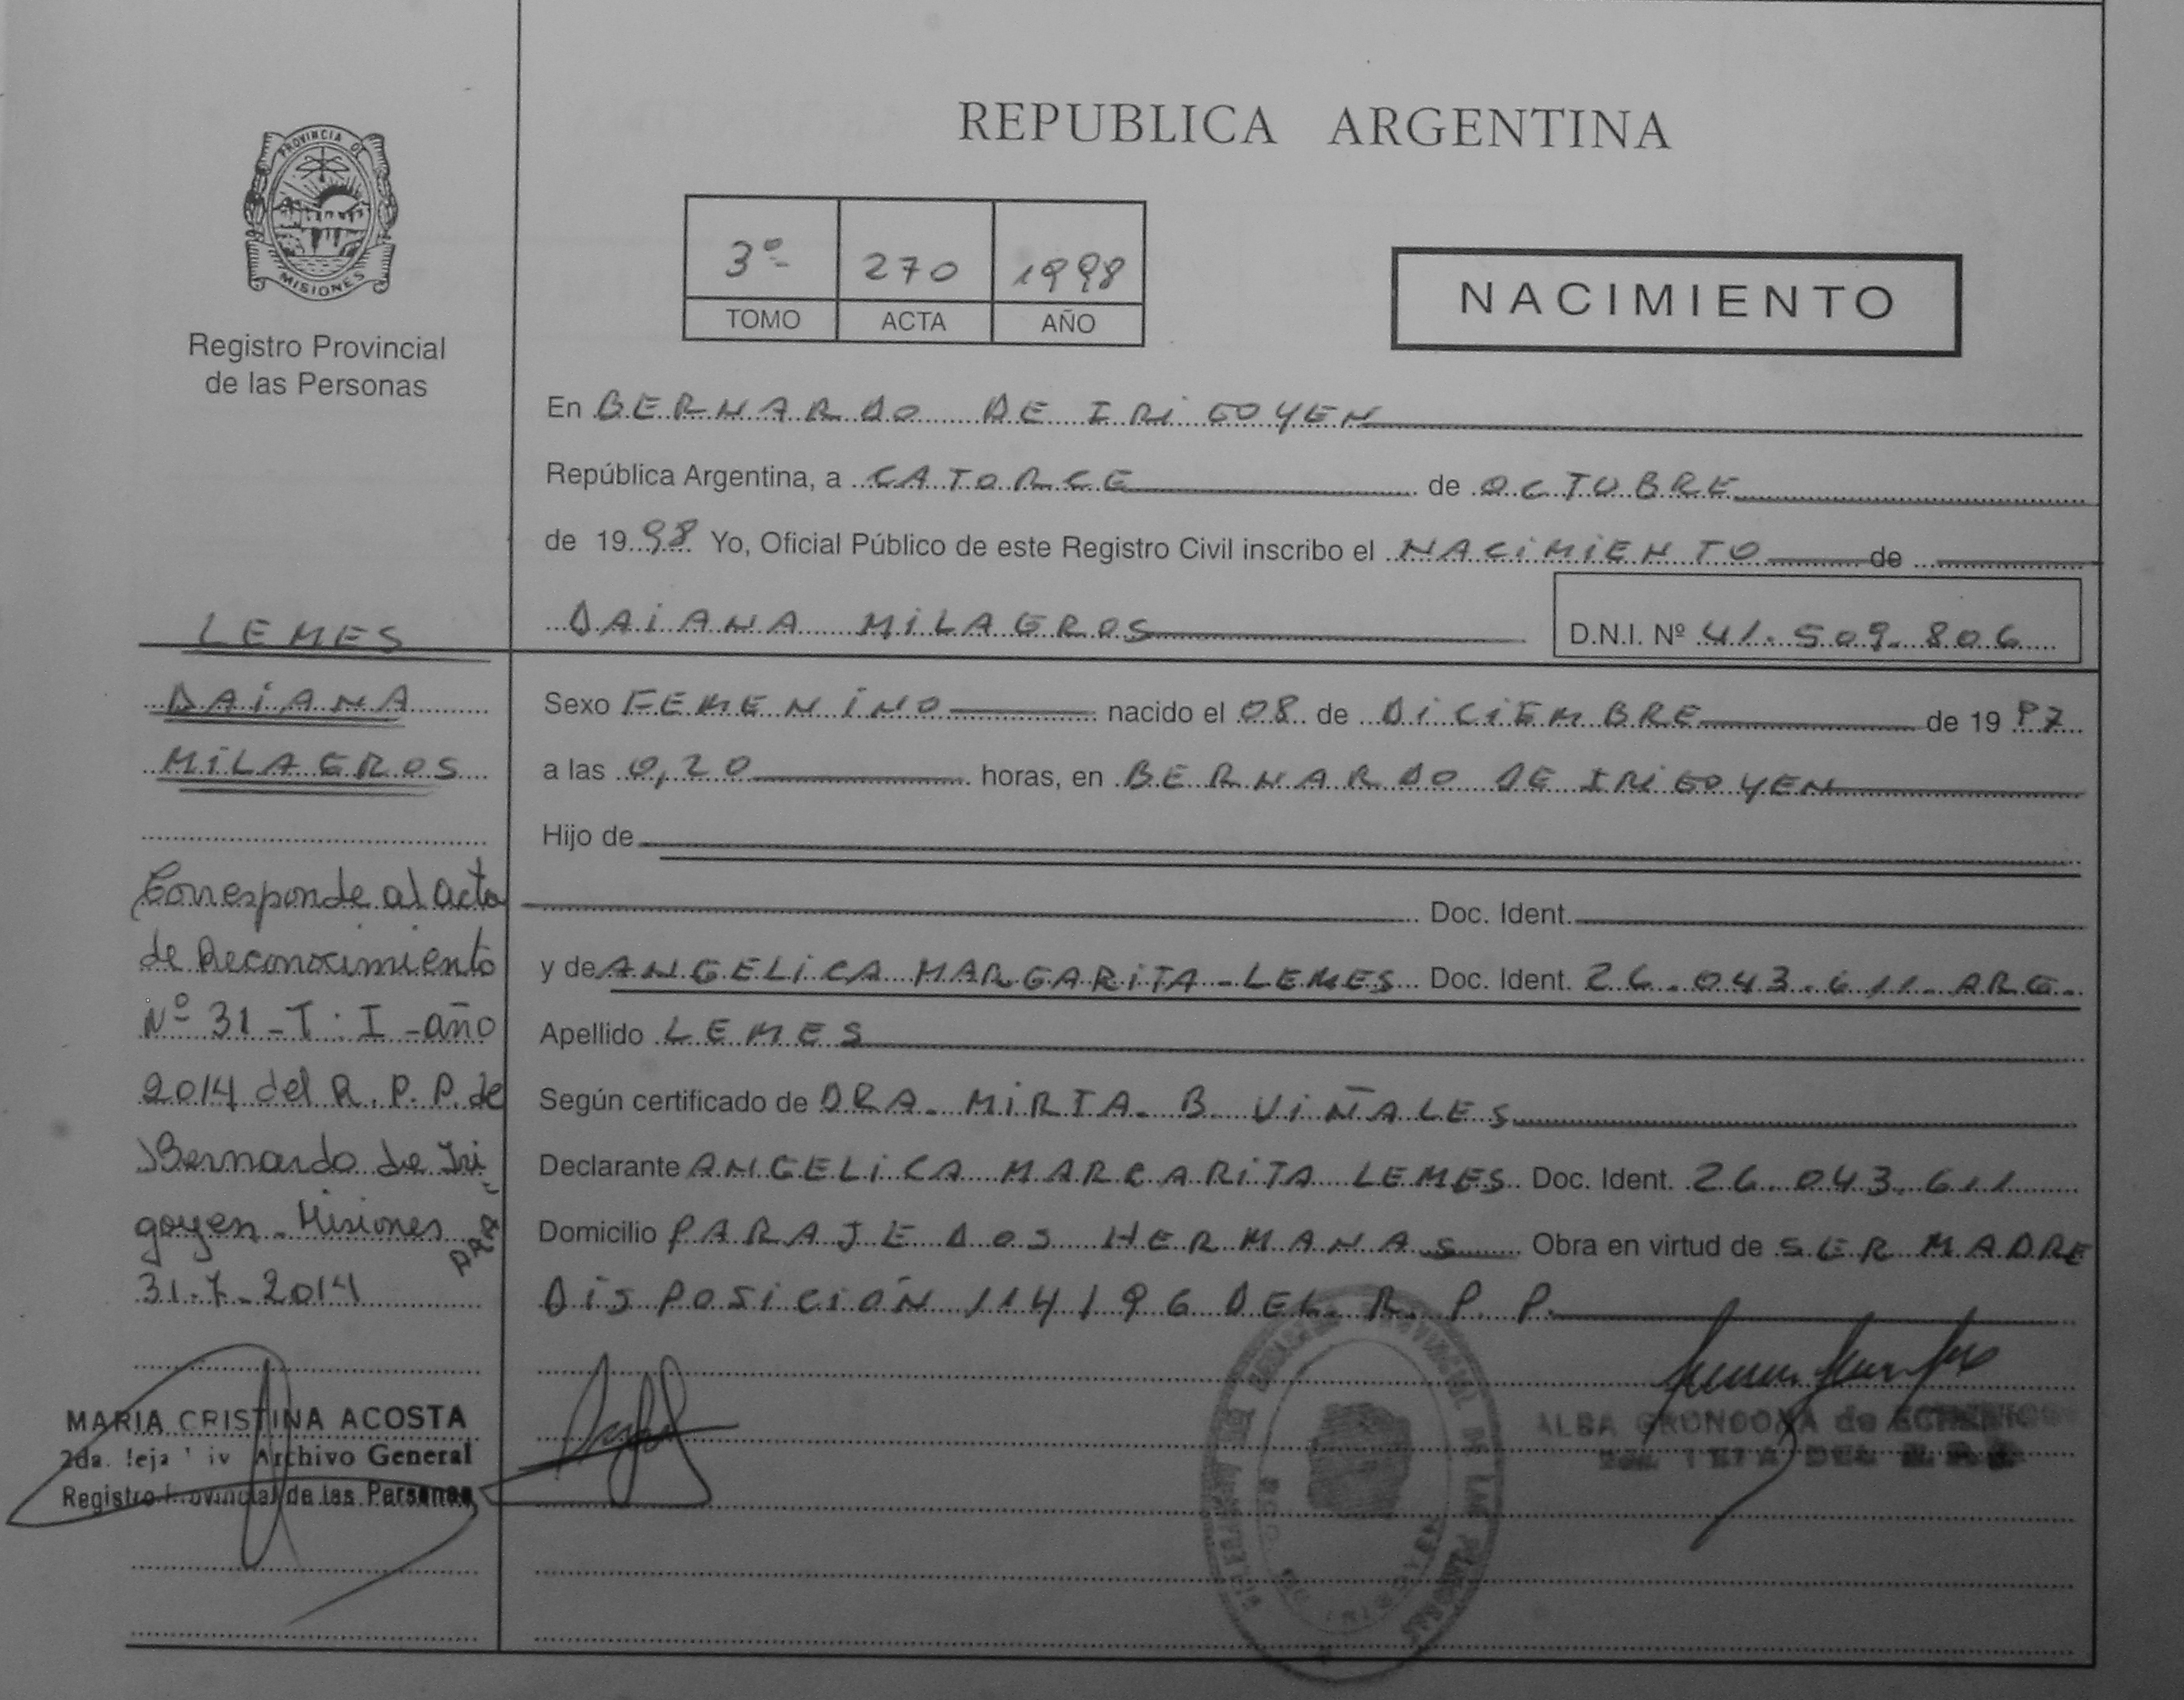 REPUBLICA ARGENTINA
PROVINCIA DE
MISIONES
Registro Provincial
de las Personas
3º 270 1998
TOMO ACTA AÑO
NACIMIENTO
En BERNARDO DE IRIGOYEN
República Argentina, a CATORCE de OCTUBRE
de 1998 Yo, Oficial Público de este Registro Civil inscribo el NACIMIENTO de
DAIANA MILAGROS D.N.I. Nº 41.509.806
LEMES
DAIANA
MILAGROS
Sexo FEMENINO nacido el 08 de DICIEMBRE de 1997
a las 0,20 horas, en BERNARDO DE IRIGOYEN
Hijo de
Doc. Ident.
y de ANGELICA MARGARITA-LEMES Doc. Ident. 26.043.611-ARG.
Apellido LEMES
Según certificado de DRA. MIRTA. B VIÑALES
Declarante ANGELICA MARGARITA LEMES Doc. Ident. 26.043.611
Domicilio PARAJE DOS HERMANAS Obra en virtud de SER MADRE
DISPOSICIÓN 114/96 DEL R. P. P.
Corresponde al acta
de Reconocimiento
Nº 31-T: I-año
2014 del R. P. P. de
Bernardo de Iri-
goyen-Misiones
31-7-2014
MARIA CRISTINA ACOSTA
2da. Archivo General
Registro Provincial de las Personas
ALBA GRONDONA de